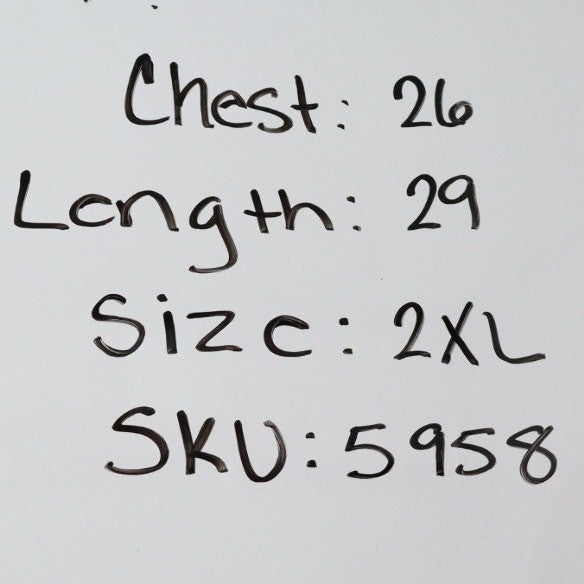 Chest: 26
Length: 29
Size: 2XL
SKU: 5958